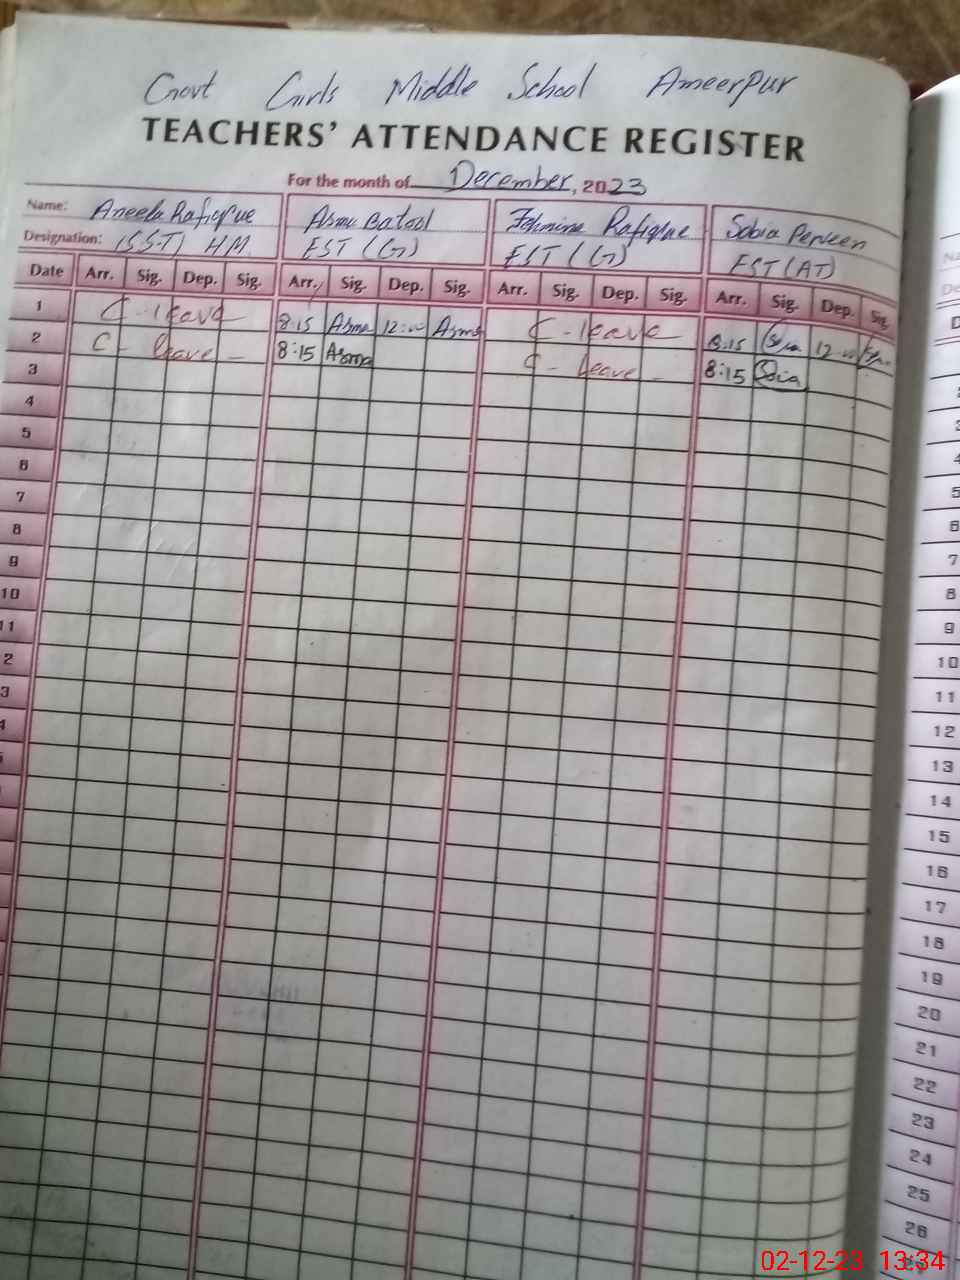 Govt Girls Middle School Ameerpur
TEACHERS' ATTENDANCE REGISTER
For the month of December, 2023
Name: Aneela Rafique Asma Batool Tehmina Rafique Sobia Perveen
Designation: (S.S.T) HM EST (G) EST (G) EST (AT)
Date Arr. Sig. Dep. Sig. Arr. Sig. Dep. Sig. Arr. Sig. Dep. Sig. Arr. Sig. Dep. Sig.
1 C - leave 8:15 Asma 12:00 Asma C - leave 8:15 12:00
2 C - leave - 8:15 Asma C - leave - 8:15 Sobia
3
4
5
6
7
8
9
10
11
2
3
4
7
8
9
10
11
12
13
14
15
16
17
18
19
20
21
22
23
24
25
26
02-12-23 13:34